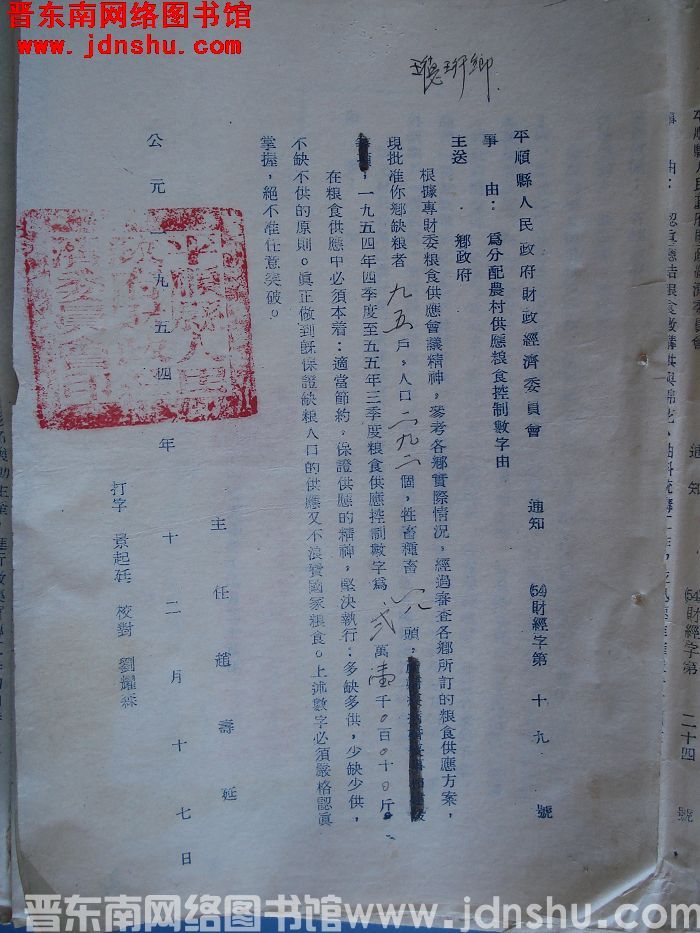 晋东南网络图书馆
www.jdnshu.com
平順縣人民政府財政經濟委員會 通知 (54)財經字第 十九 號
事 由：爲分配農村供應粮食控制數字由
主送 鄉政府
根據專財委粮食供應會議精神，參考各鄉實際情况，經過審查各鄉所訂的粮食供應方案，
現批准你鄉缺粮者 九五 戶，人口 二九二 個，牲畜種畜 一八 頭，
一九五四年四季度至五五年三季度粮食供應控制數字爲 貳 萬 壹 千 0 百 0 十 0 斤。
在粮食供應中必須本着：適當節約，保證供應的精神，堅決執行：多缺多供，少缺少供，
不缺不供的原則。眞正做到旣保證缺粮人口的供應又不浪費國家粮食。上述數字必須嚴格認眞
掌握，絕不准任意突破。
主任 趙壽延
公元一九五四年十二月十七日
打字 景起廷 校對 劉耀森
(54)財經字第 二十四 號
通知
晋东南网络图书馆 www.jdnshu.com